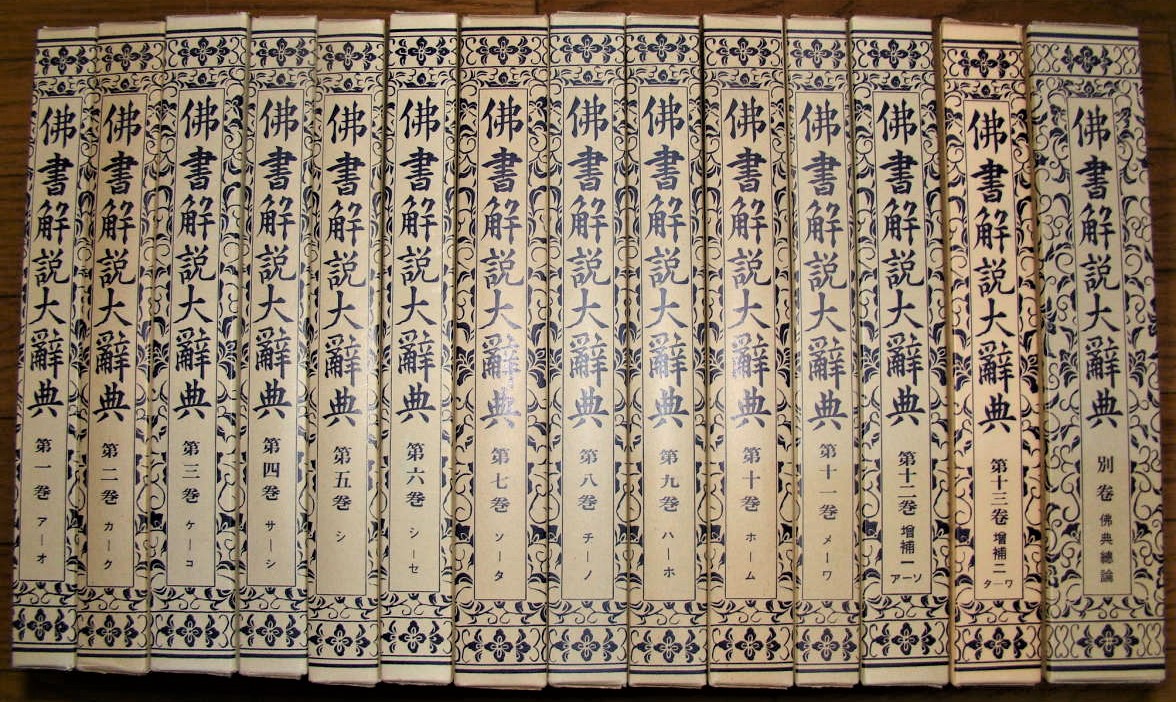 佛書解説大辭典 第一巻 ア―オ
佛書解説大辭典 第二巻 カ―ク
佛書解説大辭典 第三巻 ケ―コ
佛書解説大辭典 第四巻 サ―シ
佛書解説大辭典 第五巻 シ
佛書解説大辭典 第六巻 シ―セ
佛書解説大辭典 第七巻 ソ―タ
佛書解説大辭典 第八巻 チ―ノ
佛書解説大辭典 第九巻 ハ―ホ
佛書解説大辭典 第十巻 ホ―ム
佛書解説大辭典 第十一巻 メ―ワ
佛書解説大辭典 第十二巻 増補一 ア―ソ
佛書解説大辭典 第十三巻 増補二 タ―ワ
佛書解説大辭典 別巻 佛典總論